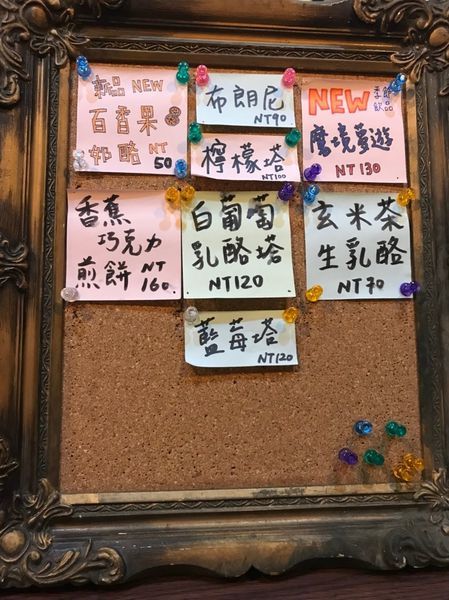 新品 NEW
百香果
奶酪 NT
50
布朗尼
NT90
檸檬塔
NT100
NEW 季節
飲品
魔境夢遊
NT130
香蕉
巧克力
煎餅 NT
160
白葡萄
乳酪塔
NT120
玄米茶
生乳酪
NT70
藍莓塔
NT120